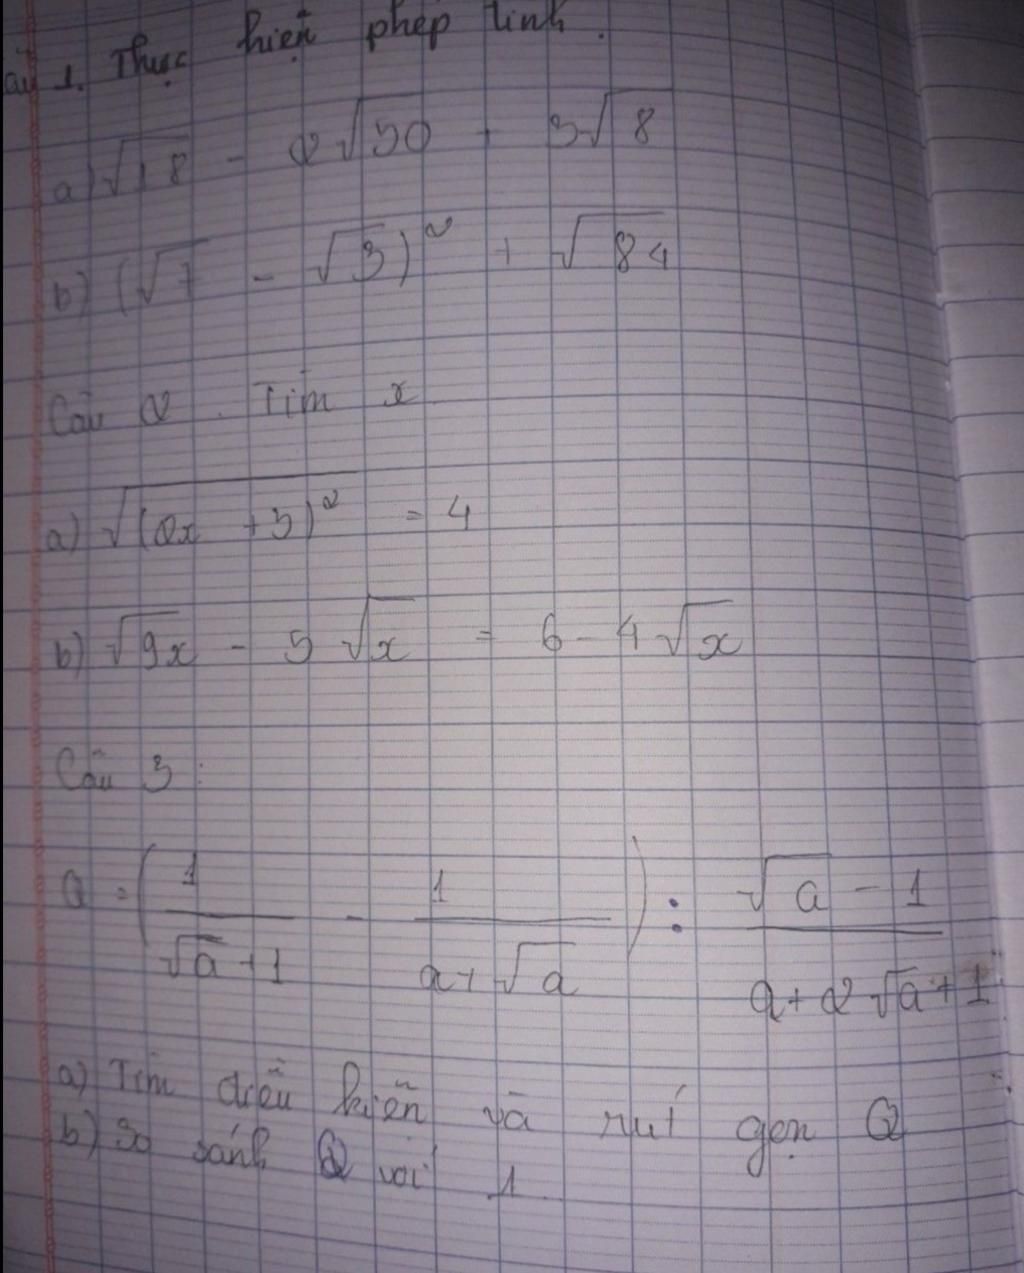 Câu 1. Thực hiện phép tính.
a) √18 - 2√50 + 3√8
b) (√7 - √3)² + √84
Câu 2. Tìm x
a) √(2x + 3)² = 4
b) √9x - 5√x = 6 - 4√x
Câu 3:
Q = (1/(√a + 1) - 1/(a + √a)) : (√a - 1)/(a + 2√a + 1)
a) Tìm điều kiện và rút gọn Q
b) So sánh Q với 1